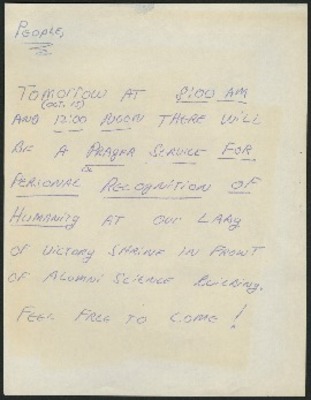 PEOPLE,
TOMORROW AT 8:00 AM
(OCT. 15)
AND 12:00 NOON THERE WILL
BE A PRAYER SERVICE FOR
OR
PERSONAL RECOGNITION OF
HUMANITY AT OUR LADY
OF VICTORY SHRINE IN FRONT
OF ALUMNI SCIENCE BUILDING.
FEEL FREE TO COME!